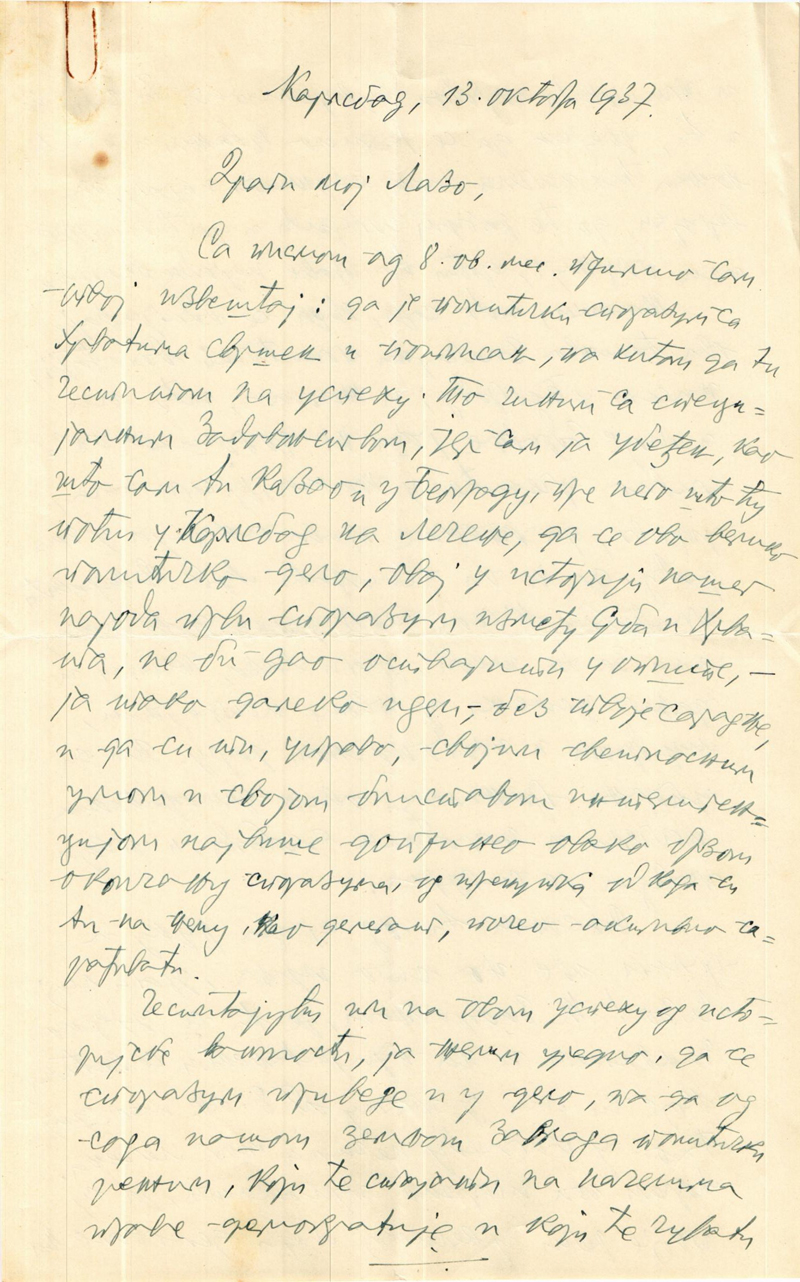 Карлсбад, 13. октобра 1937.
Драги мој Лазо,
Са писмом од 8. ов. мес. примио сам
твој извештај: да је политички споразум са
Хрватима свршен и потписан, па хитам да ти
честитам на успеху. То чиним са специ=
јалним задовољством, јер сам ја убеђен, као
што сам ти казао и у Београду, пре него што ћу
поћи у Карлсбад на лечење, да се ово велико
политичко дело, овај у историји нашег
народа први споразум између Срба и Хрва=
та, не би дао остварити у опште, –
ја тако далеко идем –, без твоје сарадње,
и да си ти, управо, својим светлосним
умом и својом блиставом интелиген=
цијом највише допринео овако брзом
окончању споразума, од тренутка од када си
ти на њему, као делегат, почео активно са=
рађивати.
Честитајући ти на овом успеху од исто=
ријске важности, ја желим уједно, да се
споразум приведе и у дело, па да од
сада нашом земљом завлада политички
режим, који ће стајати на начелима
праве демократије и који ће чувати